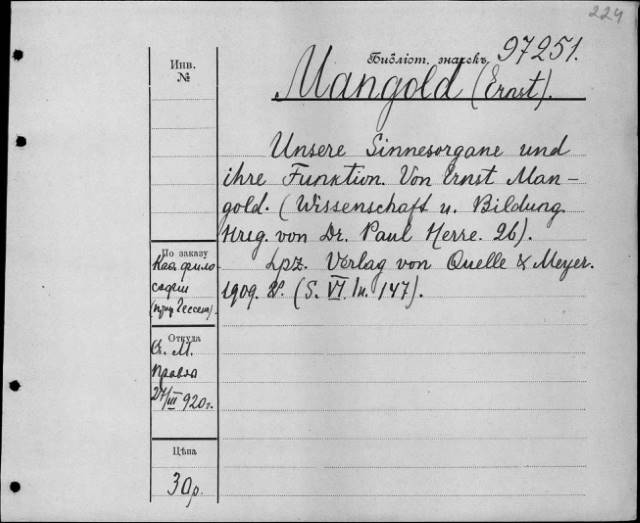 224
Бібліот. значекъ 97251.
Mangold (Ernst).
Инв.
№
Unsere Sinnesorgane und
ihre Funktion. Von Ernst Man-
gold. (Wissenschaft u. Bildung.
Hrsg. von Dr. Paul Herre. 26).
Lpz. Verlag von Quelle & Meyer.
1909. 8°. (S. VI. 147).
По заказу
Каѳ. фило
софіи
Откуда
О. М.
27/III 920 г.
Цѣна
30 р.